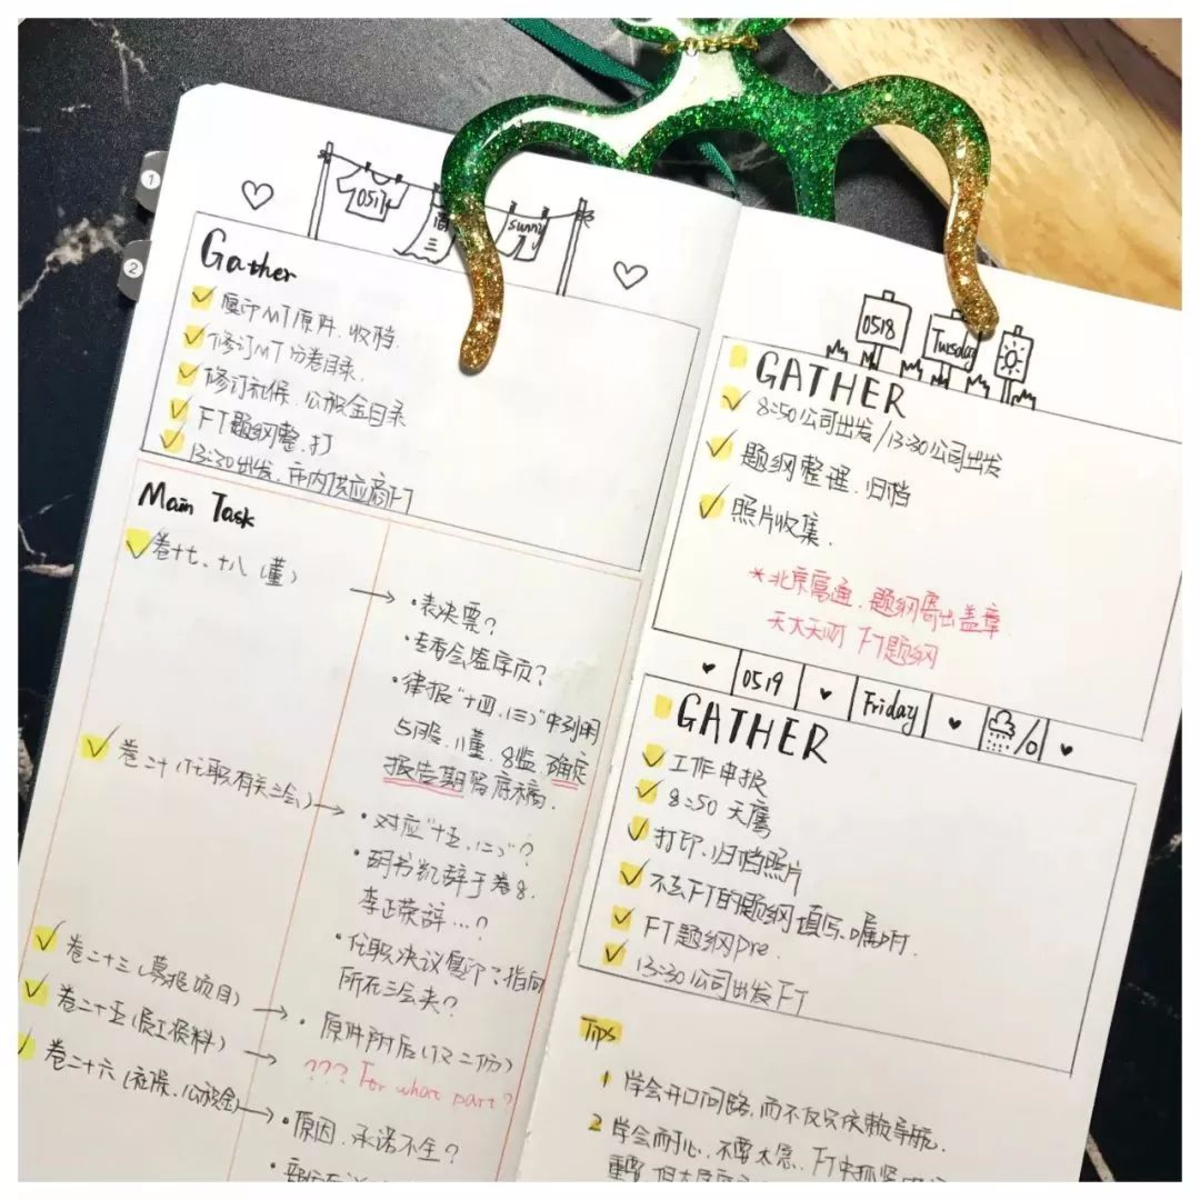 1
2
0517
周三
sunny
Gather
复印MT原件、收档.
修订MT分卷目录.
修订社保、公积金目录
FT题纲整、打
13:30出发、市内供应商FT
Main Task
卷十七、十八(董)
表决票?
专委会签字页?
律报"十四、(三)"中列明
5股、11董、8监、确定
报告期留底稿.
卷二十(任职有关三会)
对应"十五、(二)"?
胡书凯辞于卷8.
李正荣辞...?
任职决议复印?指向
所在三会夹?
卷二十三(募投项目)
原件附后(仅二份)
卷二十五(员工资料)
??? For what part?
卷二十六(社保、公积金)
原因、承诺不全?
0518
Tursday
GATHER
8:50公司出发/13:30公司出发
题纲整理、归档
照片收集.
*北京富通、题纲寄出盖章
天大天财 FT题纲
0519
Friday
GATHER
工作申报
8:50 天鹰
打印、归档照片
不去FT的题纲填写、嘱咐.
FT题纲pre.
13:30公司出发FT
Tips
1 学会开口问路,而不仅只依赖导航.
2 学会耐心、不要太急、FT中抓紧